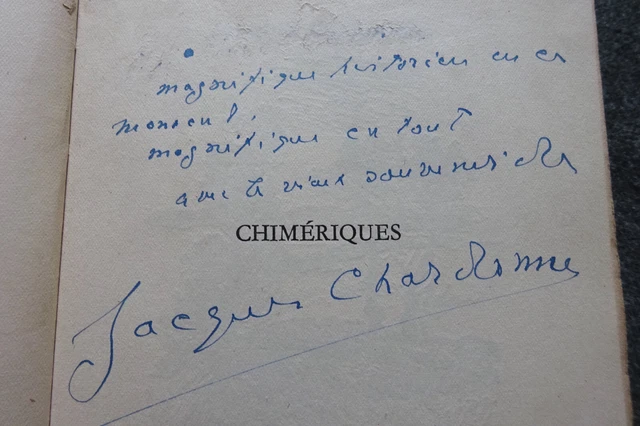 magnifique historien en ce
moment,
magnifique en tout
avec le vieux souvenir de
CHIMÉRIQUES
Jacques Chardonne